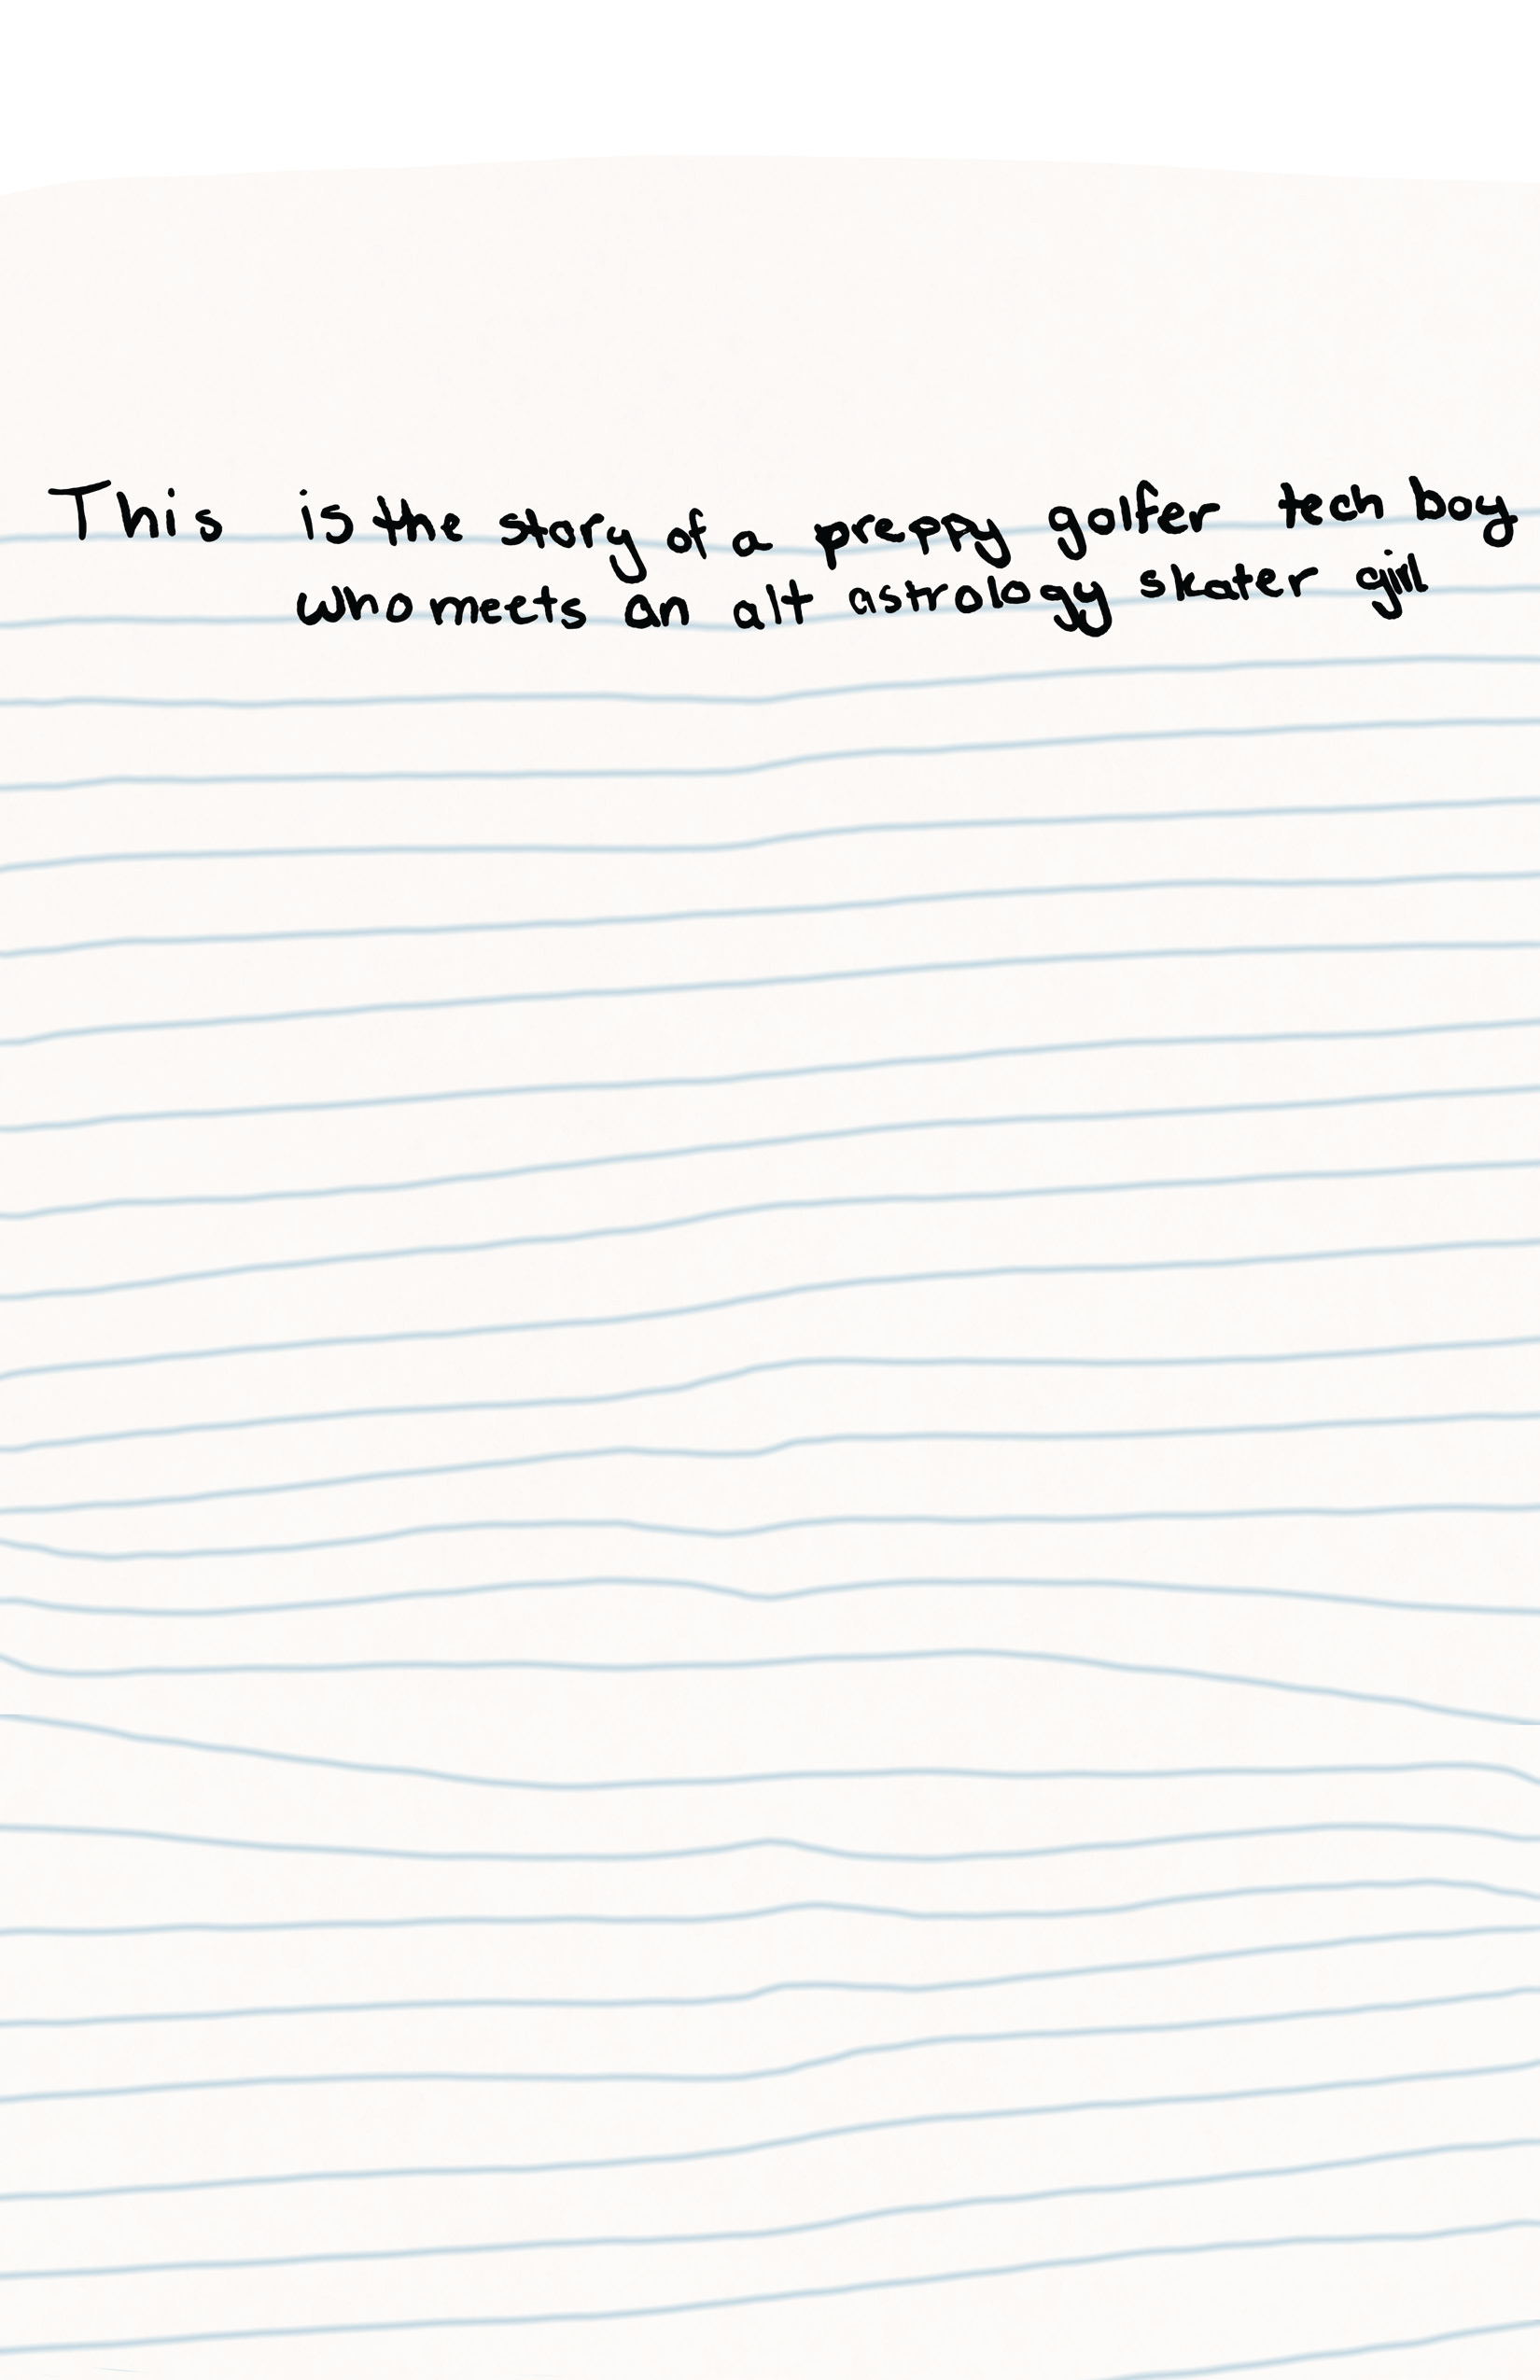 This is the story of a preppy golfer tech boy
who meets an alt astrology skater girl